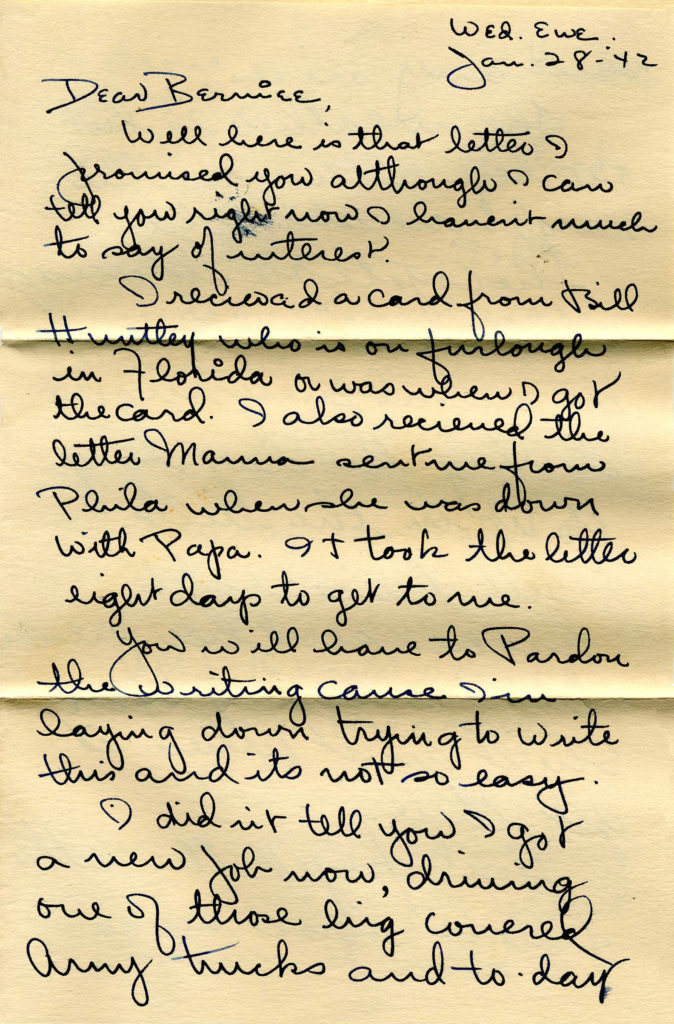 Wed. Eve.
Jan. 28-'42
Dear Bernice,
Well here is that letter I
promised you although I can
tell you right now I haven't much
to say of interest.
I recieved a card from Bill
Huntley who is on furlough
in Florida or was when I got
the card. I also recieved the
letter Mamma sent me from
Phila when she was down
with Papa. It took the letter
eight days to get to me.
You will have to Pardon
the writing cause I'm
laying down trying to write
this and its not so easy.
I did n't tell you I got
a new job now, driving
one of those big covered
Army trucks and to-day